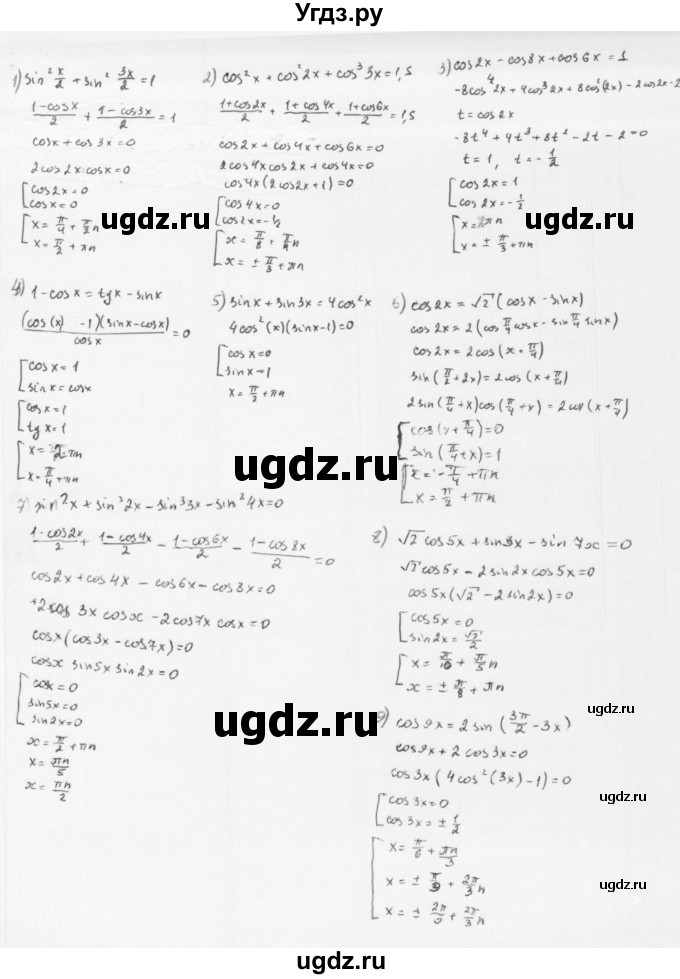 Угдз.ру
1) sin² x/2 + sin² 3x/2 = 1
(1-cosx)/2 + (1-cos3x)/2 = 1
cosx + cos3x = 0
2cos2x cosx = 0
[cos2x = 0
cosx = 0
[x = π/4 + π/2 n
x = π/2 + πn
2) cos²x + cos²2x + cos³3x = 1,5
(1+cos2x)/2 + (1+cos4x)/2 + (1+cos6x)/2 = 1,5
cos2x + cos4x + cos6x = 0
2cos4x cos2x + cos4x = 0
cos4x(2cos2x+1) = 0
[cos4x = 0
cos2x = -1/2
[x = π/8 + π/4 n
x = ± π/3 + πn
3) cos2x - cos8x + cos6x = 1
-8cos⁴2x + 4cos³2x + 8cos²(2x) - 2cos2x - 2
t = cos2x
-8t⁴ + 4t³ + 8t² - 2t - 2 = 0
t = 1, t = -1/2
[cos2x = 1
cos2x = -1/2
[x = πn
x = ± π/3 + πn
ugdz.ru
ugdz.ru
4) 1 - cosx = tgx - sinx
((cos(x) -1)(sinx-cosx))/cosx = 0
[cosx = 1
sinx = cosx
[cosx = 1
tgx = 1
[x = 2πn
x = π/4 + πn
5) sinx + sin3x = 4cos²x
4cos²(x)(sinx-1) = 0
[cosx = 0
sinx = 1
x = π/2 + πn
6) cos2x = √2 (cosx - sinx)
cos2x = 2(cos π/4 cosx - sin π/4 sinx)
cos2x = 2cos(x + π/4)
sin(π/2 + 2x) = 2cos(x + π/4)
2sin(π/4 + x)cos(π/4 + x) = 2cos(x + π/4)
[cos(x + π/4) = 0
sin(π/4 + x) = 1
[x = -π/4 + πn
x = π/2 + πn
ugdz.ru
7) sin²x + sin²2x - sin³3x - sin²4x = 0
(1-cos2x)/2 + (1-cos4x)/2 - (1-cos6x)/2 - (1-cos8x)/2 = 0
cos2x + cos4x - cos6x - cos8x = 0
+2cos3x cosx - 2cos7x cosx = 0
cosx(cos3x - cos7x) = 0
cosx sin5x sin2x = 0
[cosx = 0
sin5x = 0
sin2x = 0
x = π/2 + πn
x = πn/5
x = πn/2
8) √2 cos5x + sin3x - sin7x = 0
√2 cos5x - 2sin2x cos5x = 0
cos5x(√2 - 2sin2x) = 0
[cos5x = 0
sin2x = √2/2
[x = π/10 + π/5 n
x = ± π/8 + πn
ugdz.ru
9) cos9x = 2sin(3π/2 - 3x)
cos9x + 2cos3x = 0
cos3x(4cos²(3x) - 1) = 0
[cos3x = 0
cos3x = ± 1/2
[x = π/6 + πn/3
x = ± π/9 + 2π/3 n
x = ± 2π/9 + 2π/3 n
ugdz.ru
ugdz.ru